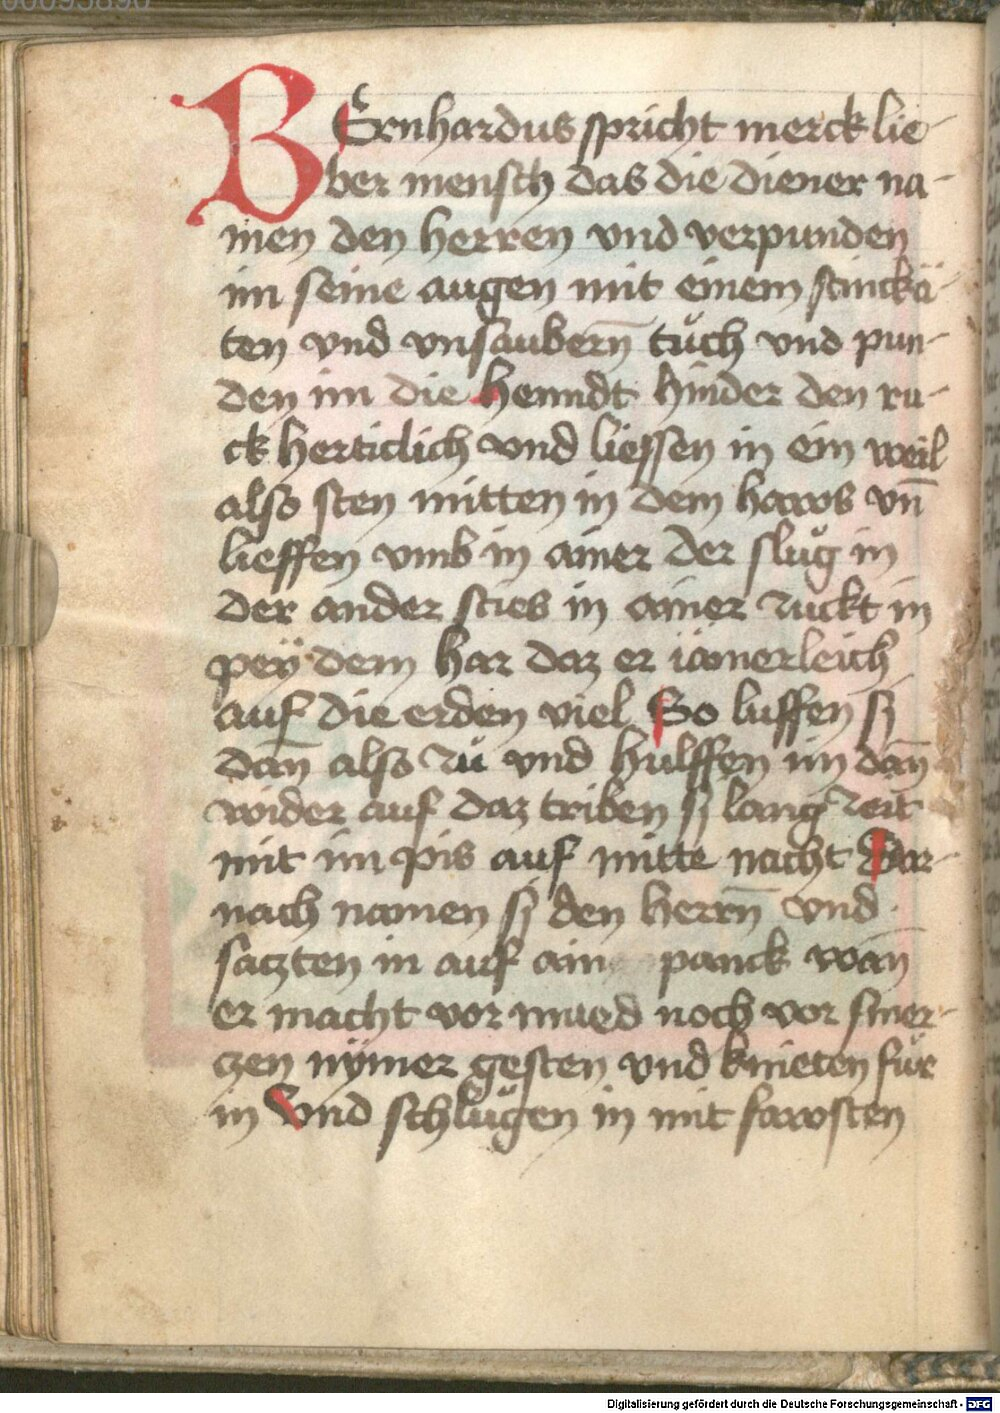 00093890
BErnhardus spricht merck lie-
ber mensch das die diener na-
men den herren vnd verpunden
im seine augen mit einem stinckā-
ten vnd vnsauberñ tůch vnd pun-
den im die henndt hinder den ru-
ck herticlich vnd liessen in ein weil
also sten mitten in dem haws vn̄
lieffen vmb in ainer der slůg in
der ander sties in ainer zuckt in
pey dem har daz er iamerleich
auf die erden viel So luffen sy
dan̄ also zů vnd hulffen im dan̄
wider auf daz triben sy lang zeit
mit im pis auf mitte nacht Dar-
nach namen sy den herrñ vnd
saczten in auf ain panck wān
er macht vor mued noch vor smer-
czen nÿmer gesten vnd knieten fůr
in Vnd schlůgen in mit fawsten
Digitalisierung gefördert durch die Deutsche Forschungsgemeinschaft - DFG